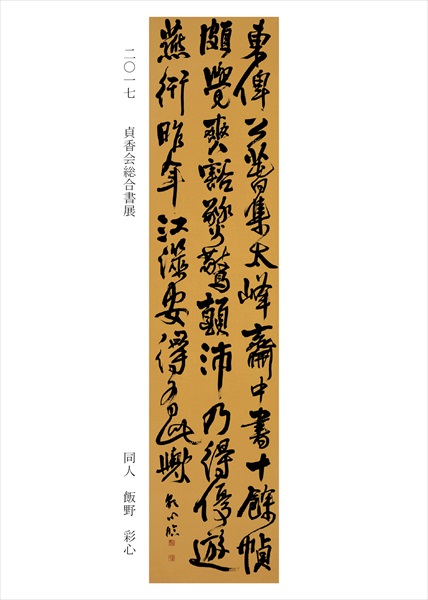 集太峰齋中書十餘幀
頗覺爽豁驚顛沛乃得優遊
燕衎昨年江安得有此
二〇一七 貞香会総合書展
同人 飯野 彩心